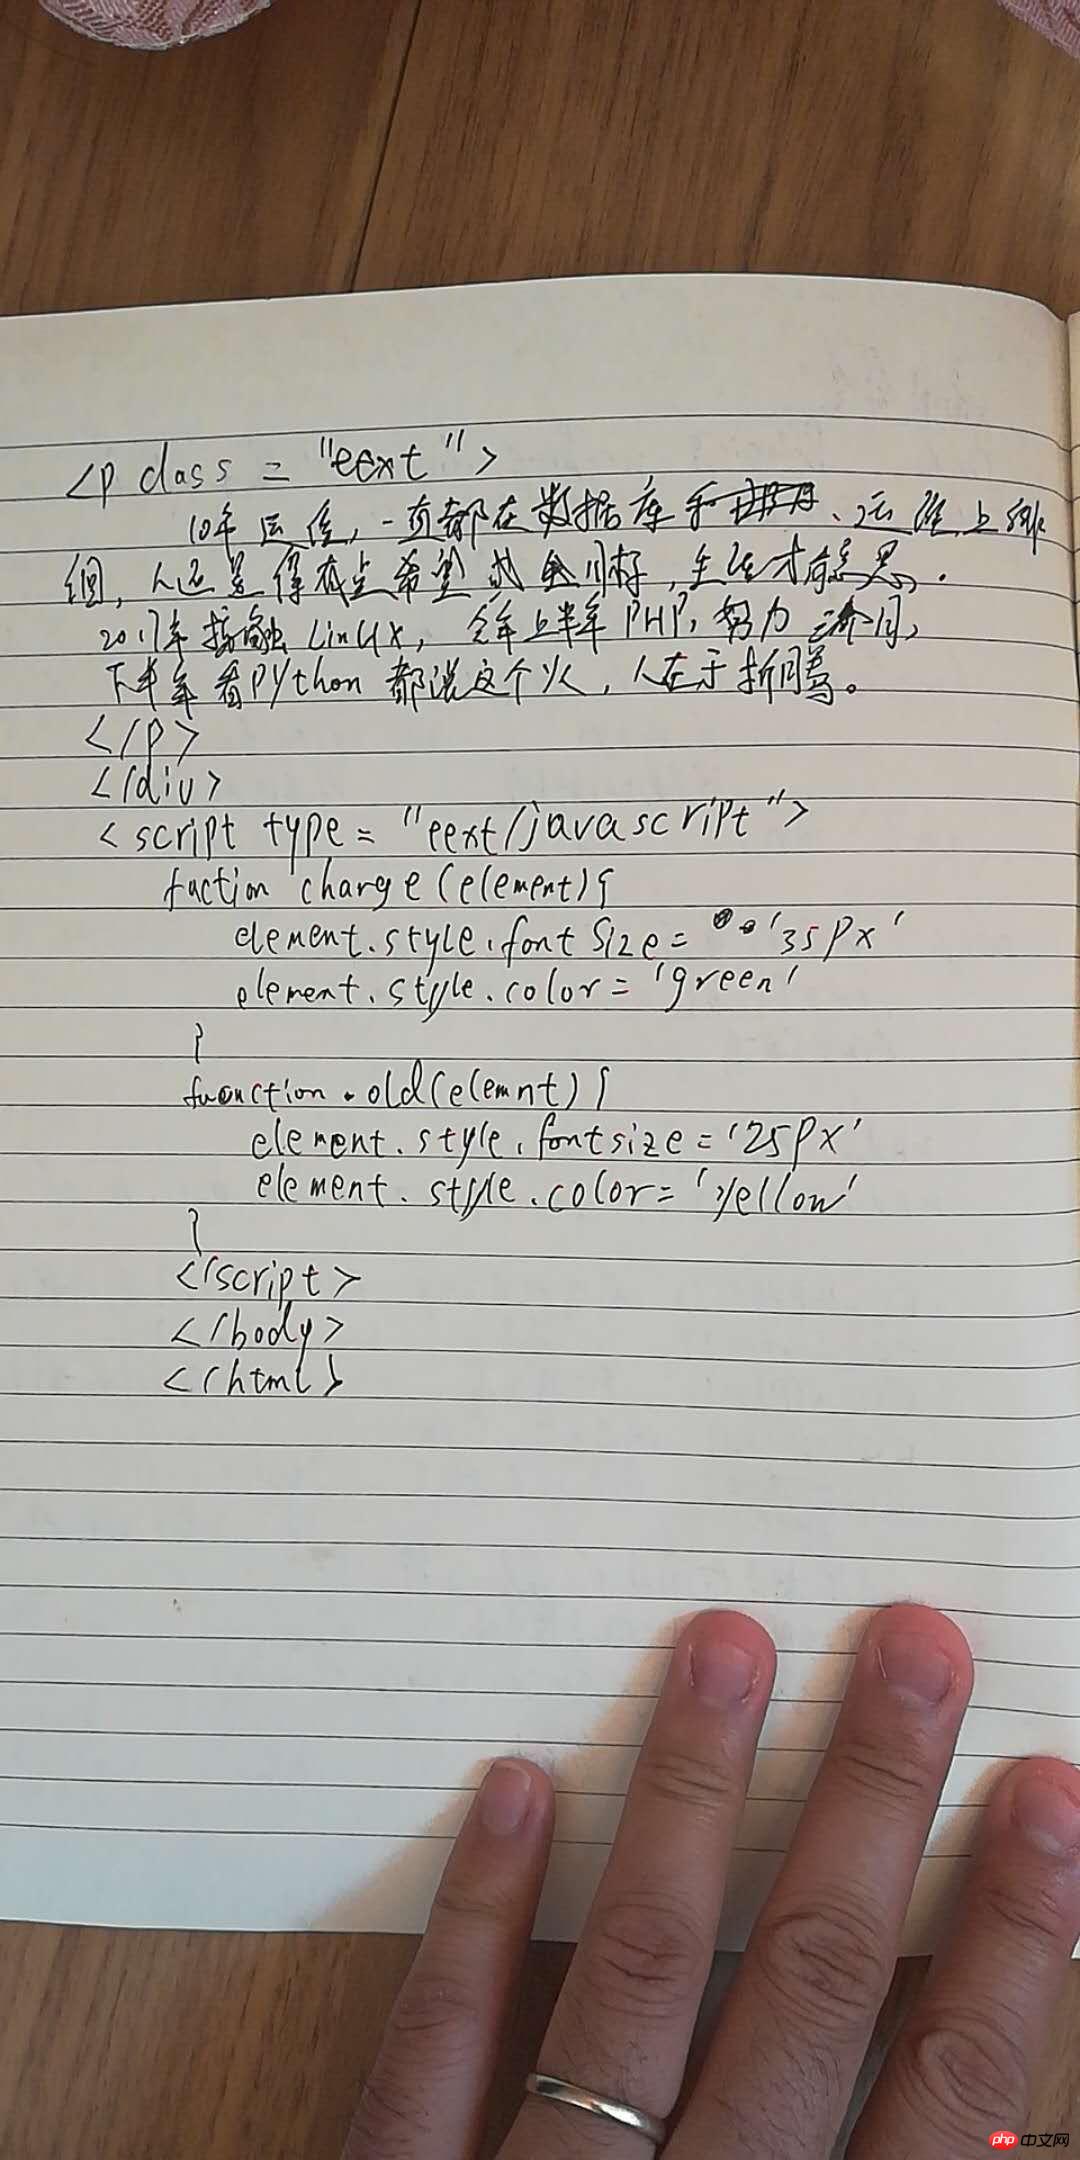 <p class = "eext">
10年运维, 一直都在数据库和、运维上徘
徊, 人还是得有点希望或会川好, 生活才有意思,.
2017年接触Linux, 今年上半年PHP, 努力三个月,
下半年看PYthon 都说这个火, 人在于折腾。
</p>
</div>
<script type = "eext/javascript">
fuction charge (element){
element.style.font Size = '35px'
element.style.color = 'green'
}
function.old(elemnt) {
element.style.fontsize = '25px'
element.style.color = 'yellow'
}
</script>
</body>
</html>
php 中文网